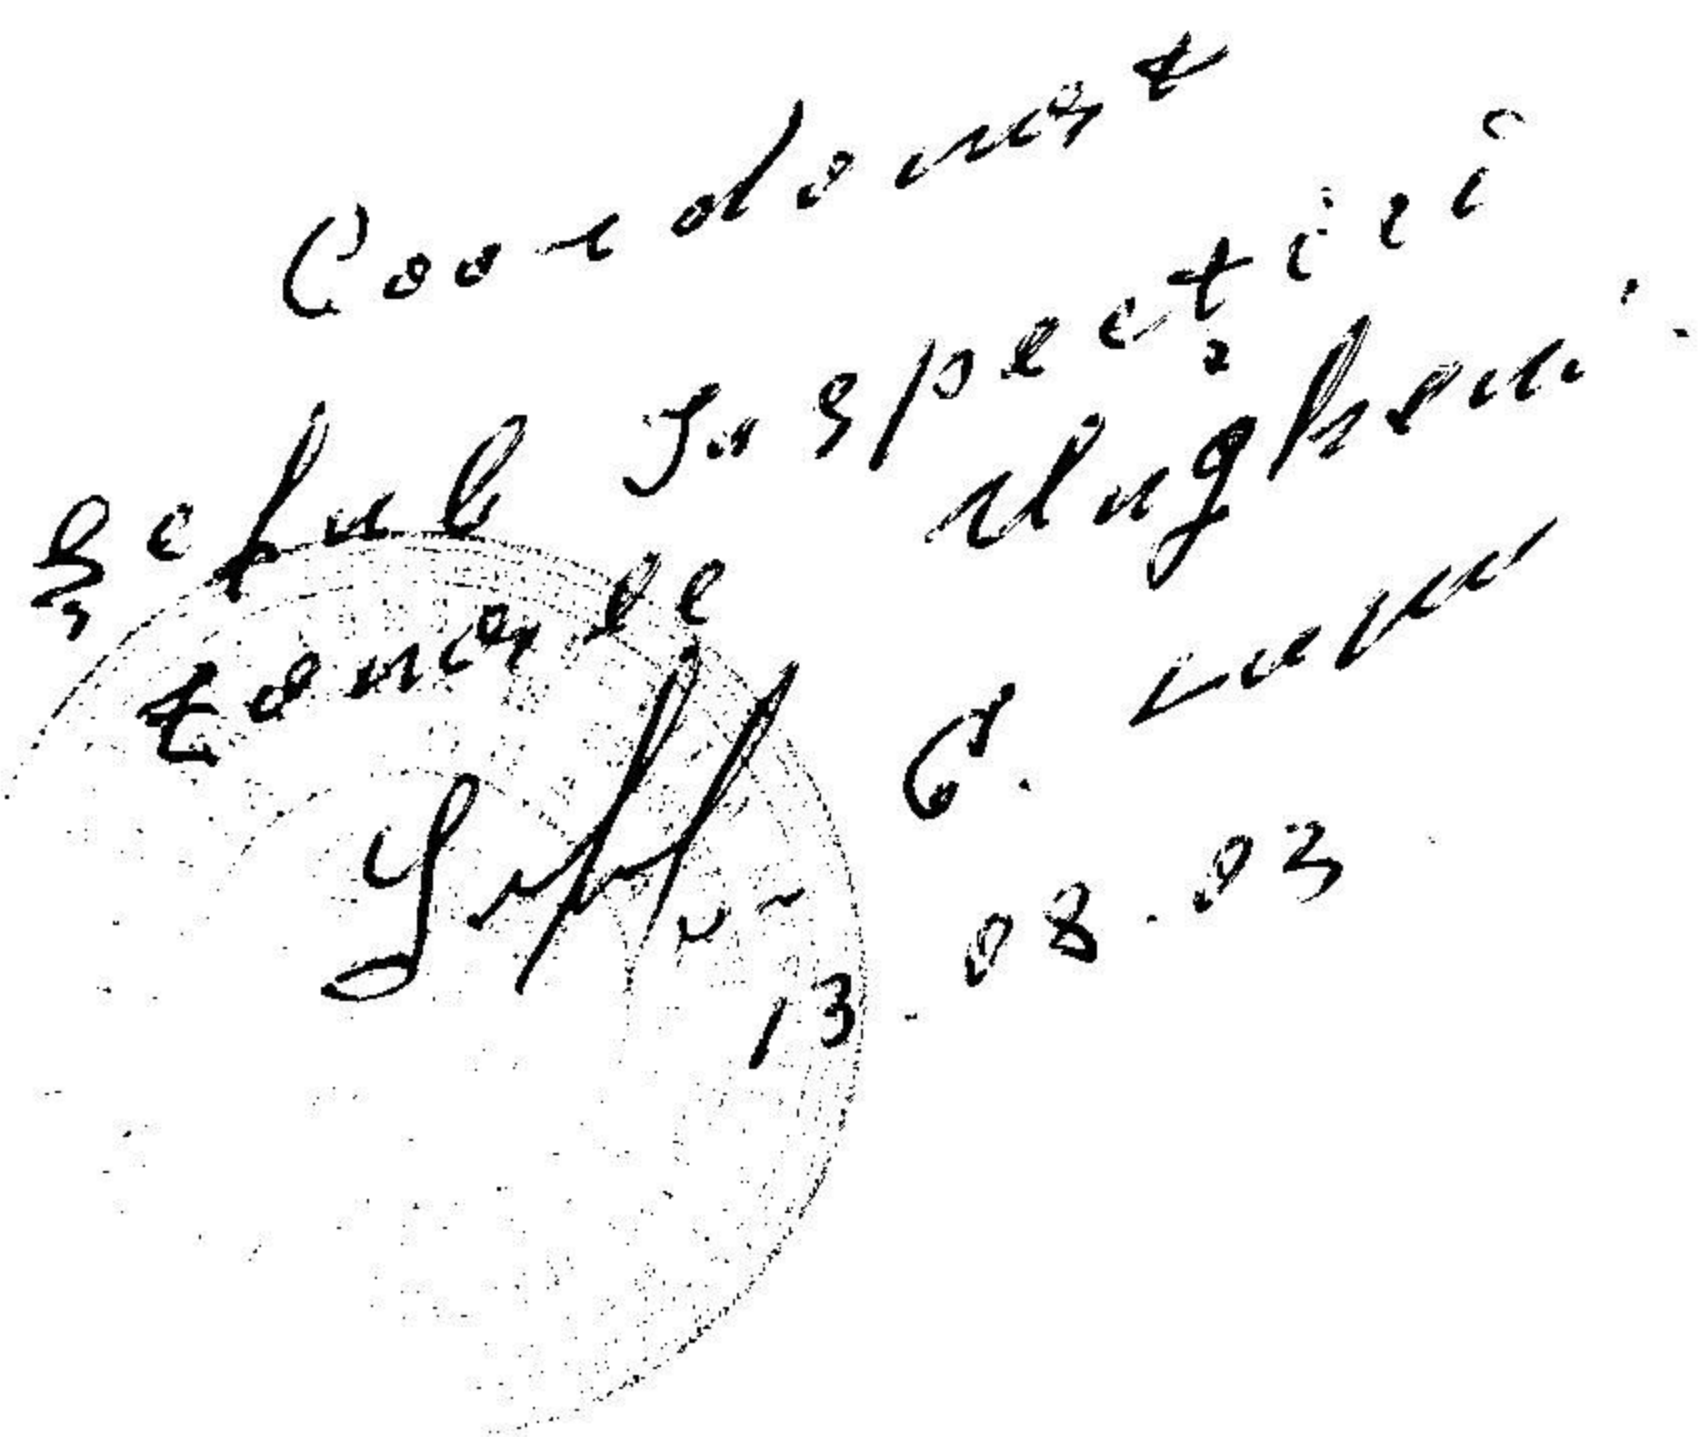 Coordonat
Șeful Inspecției
zonale Ungheni.
G. Lupu
13.08.03